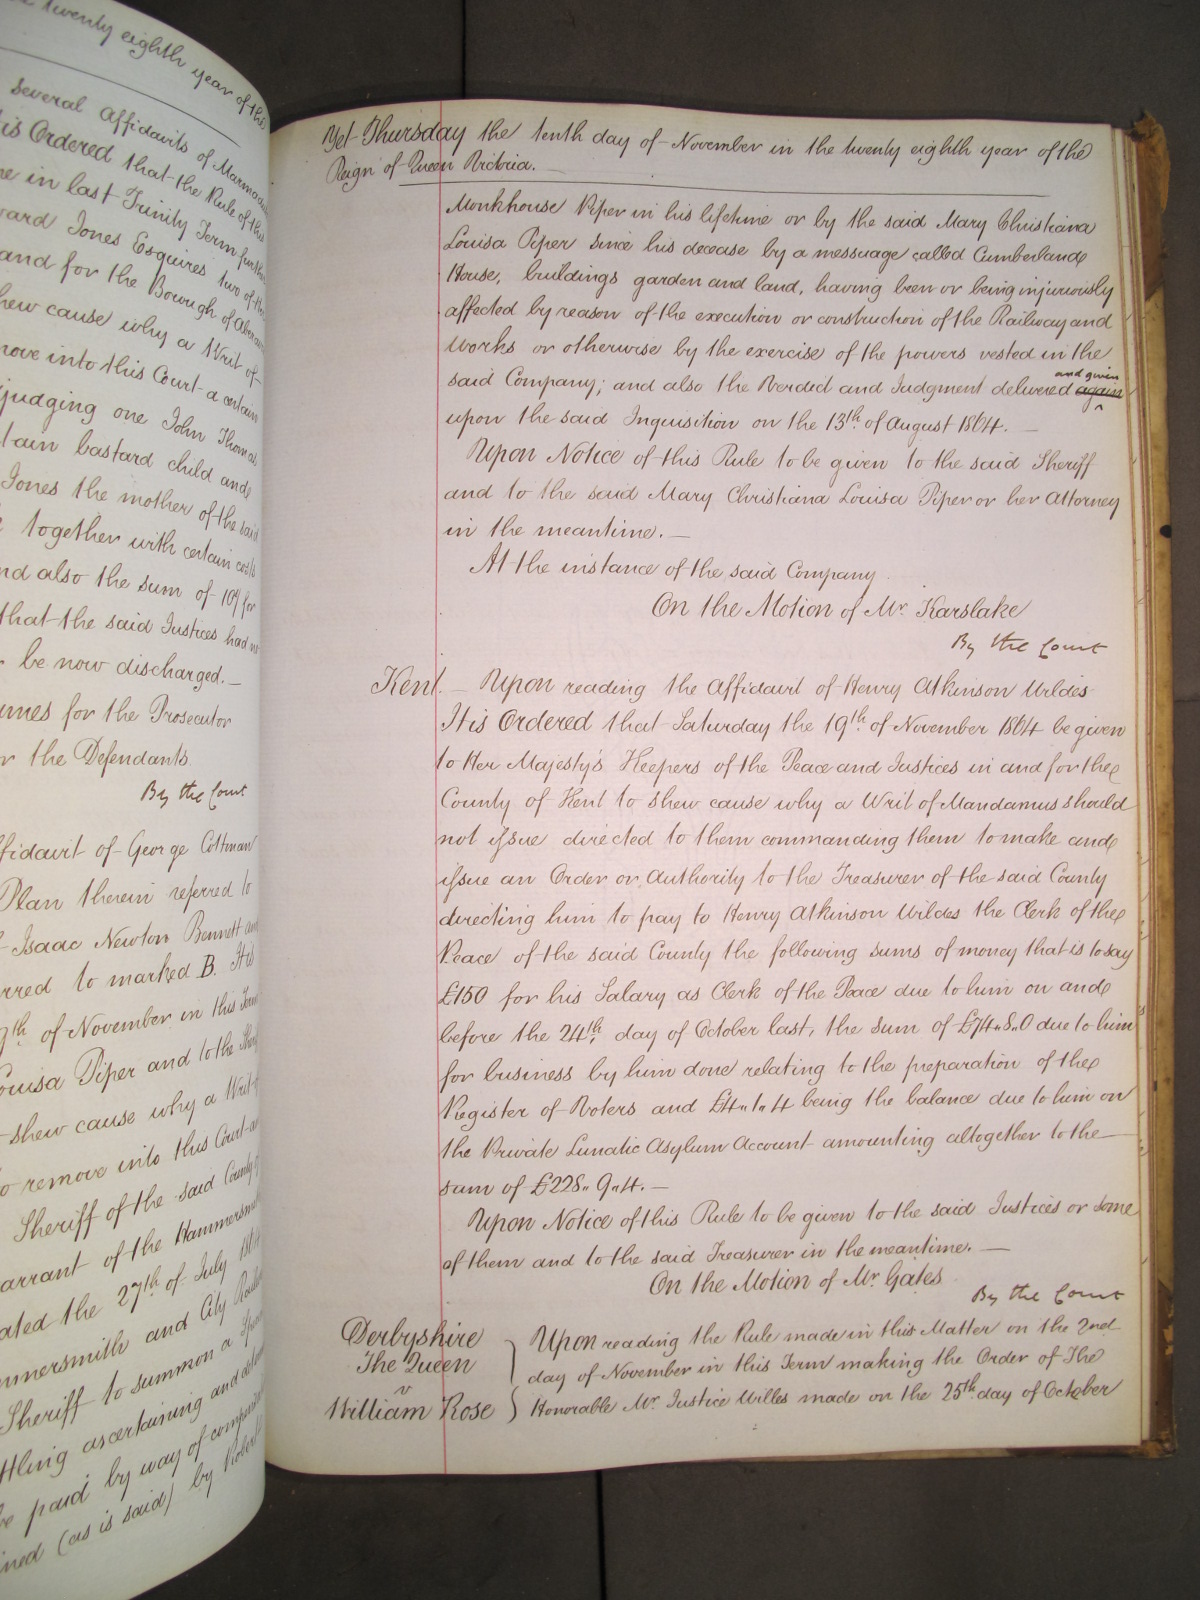 twenty eighth year of the
several Affidavits of
is Ordered that the Rule of this
in last Trinity Term
Jones Esquires two of the
and for the Borough of
shew cause why a Writ of
move into this Court a certain
judging one John Thomas
bastard child and
Jones the mother of the said
together with certain costs
and also the sum of 10/ for
that the said Justices had
be now discharged.—
for the Prosecutor
the Defendants
By the Court
of George Cottman
Plan therein referred to
Isaac Newton Bennett
to marked B. It is
th of November in this Term
Louisa Piper and to the
shew cause why a Writ of
to remove into this Court
Sheriff of the said County
of the Hammersmith
the 27th of July
and City
Sheriff to summon a
ascertaining and
paid by way of
(as is said) by Robert
Yet Thursday the tenth day of November in the twenty eighth year of the
Reign of Queen Victoria.
Monkhouse Piper in his lifetime or by the said Mary Christiana
Louisa Piper since his decease by a messuage called Cumberland
House, buildings garden and land, having been or being injuriously
affected by reason of the execution or construction of the Railway and
Works or otherwise by the exercise of the powers vested in the
said Company; and also the Verdict and Judgment delivered again and given
upon the said Inquisition on the 13th of August 1864. —
Upon Notice of this Rule to be given to the said Sheriff
and to the said Mary Christiana Louisa Piper or her Attorney
in the meantime. —
At the instance of the said Company
On the Motion of Mr. Karslake
By the Court
Kent. — Upon reading the Affidavit of Henry Atkinson Wildes
It is Ordered that Saturday the 19th of November 1864 be given
to Her Majesty's Keepers of the Peace and Justices in and for the
County of Kent to shew cause why a Writ of Mandamus should
not issue directed to them commanding them to make and
issue an Order or Authority to the Treasurer of the said County
directing him to pay to Henry Atkinson Wildes the Clerk of the
Peace of the said County the following sums of money that is to say
£150 for his Salary as Clerk of the Peace due to him on and
before the 24th day of October last, the sum of £74„8„0 due to him
for business by him done relating to the preparation of the
Register of Voters and £4„1„4 being the balance due to him on
the Private Lunatic Asylum Account amounting altogether to the
sum of £228„9„4. —
Upon Notice of this Rule to be given to the said Justices or some
of them and to the said Treasurer in the meantime. —
On the Motion of Mr. Gates
By the Court
Derbyshire
The Queen
v
William Rose
Upon reading the Rule made in this Matter on the 2nd
day of November in this Term making the Order of The
Honorable Mr. Justice Willes made on the 25th day of October